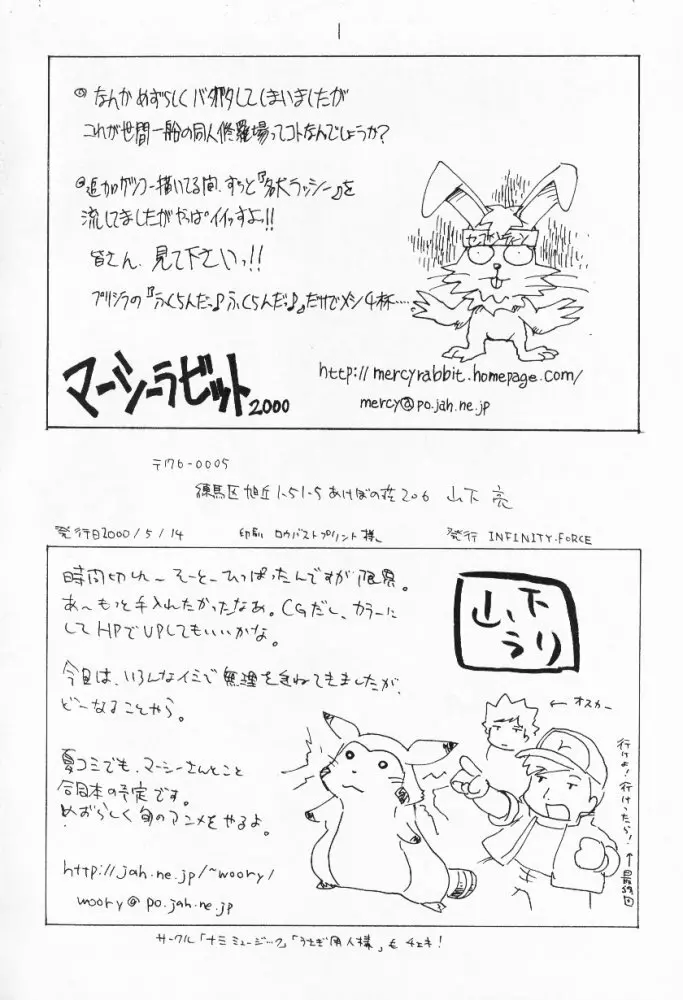 なんかめずらしくバタバタしてしまいましたが
これが世間一般の同人修羅場ってコトなんでしょうか?
追加ゲンコー描いてる間、ずっと『名犬ラッシー』を
流してましたがやっぱイイッすよッ!!
皆さん、見て下さいっ!!
プリシラの『ふくらんだっ♪ふくらんだっ♪』だけでメシ4杯‥‥
マーシーラビット2000
http://mercyrabbit.homepage.com/
mercy@po.jah.ne.jp
〒176-0005
練馬区旭丘1-51-5あけぼの荘206 山下 亮
発行日2000/5/14 印刷 ロウバストプリント様 発行 INFINITY-FORCE
時間切れ〜 そーとーひっぱったんですが限界。
あ〜もっと手入れたかったなあ。CGだし、カラーに
してHPでUPしてもいいかな。
今回は、いろんなイミで無理を重ねてきましたが、
どーなることやら。
夏コミでも、マーシーさんとこと
合同本の予定です。
めずらしく旬のアニメをやるよ。
http://jah.ne.jp/~woory/
woory@po.jah.ne.jp
山下
うり
← オスカー
行けよ!行けったら!
↑最終回
サークル「ナミミュージック」「うさぎ同人様」もチェキ!